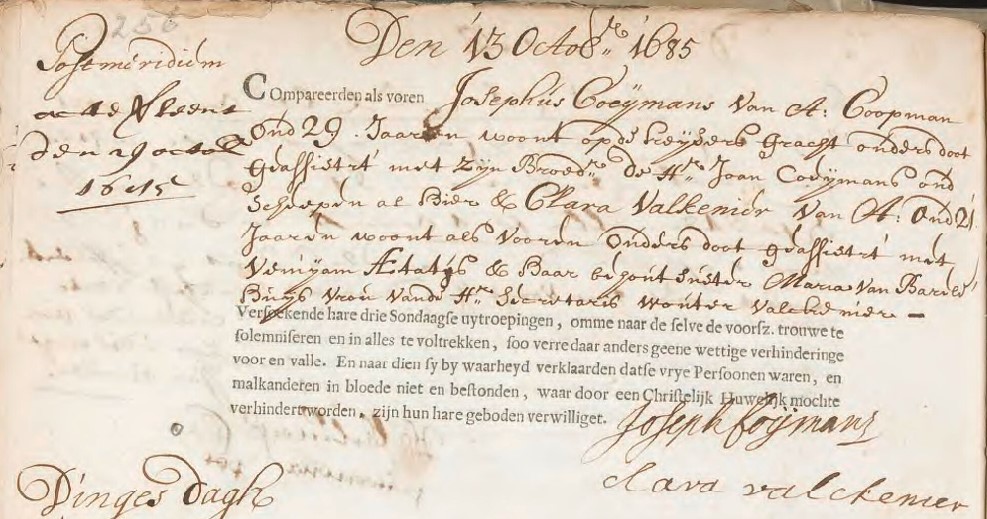 256
Den 13 Octob.re 1685
Postmeridiem
acte verleent
den 29 octob
1685
Compareerden als voren Josephus Coeymans Van A: Coopman
Oud 29. Jaaren woont op de keysers gracht ouders doot
geassisteert met zijn Broed.r de H.r Joan Coeymans oud
Scheepen al hier & Clara Valkenier Van A: Oud 21
Jaaren woont als Vooren Ouders doot geassisteert met
Venijam Ætatis & Haar behout suster Maria Van Barelt
Buys Vrou Vande H.r Secretaris Wouter Valckenier
Versoekende hare drie Sondaagse uytroepingen, omme naar de selve de voorsz. trouwe te
solemniseren en in alles te voltrekken, soo verre daar anders geene wettige verhinderinge
voor en valle. En naar dien sy by waarheyd verklaarden datse vrye Persoonen waren, en
malkanderen in bloede niet en bestonden, waar door een Christelijk Huwelijk mochte
verhindert worden, zijn hun hare geboden verwilliget.
Joseph Coÿmans
Clara valckenier
Dinges dagh